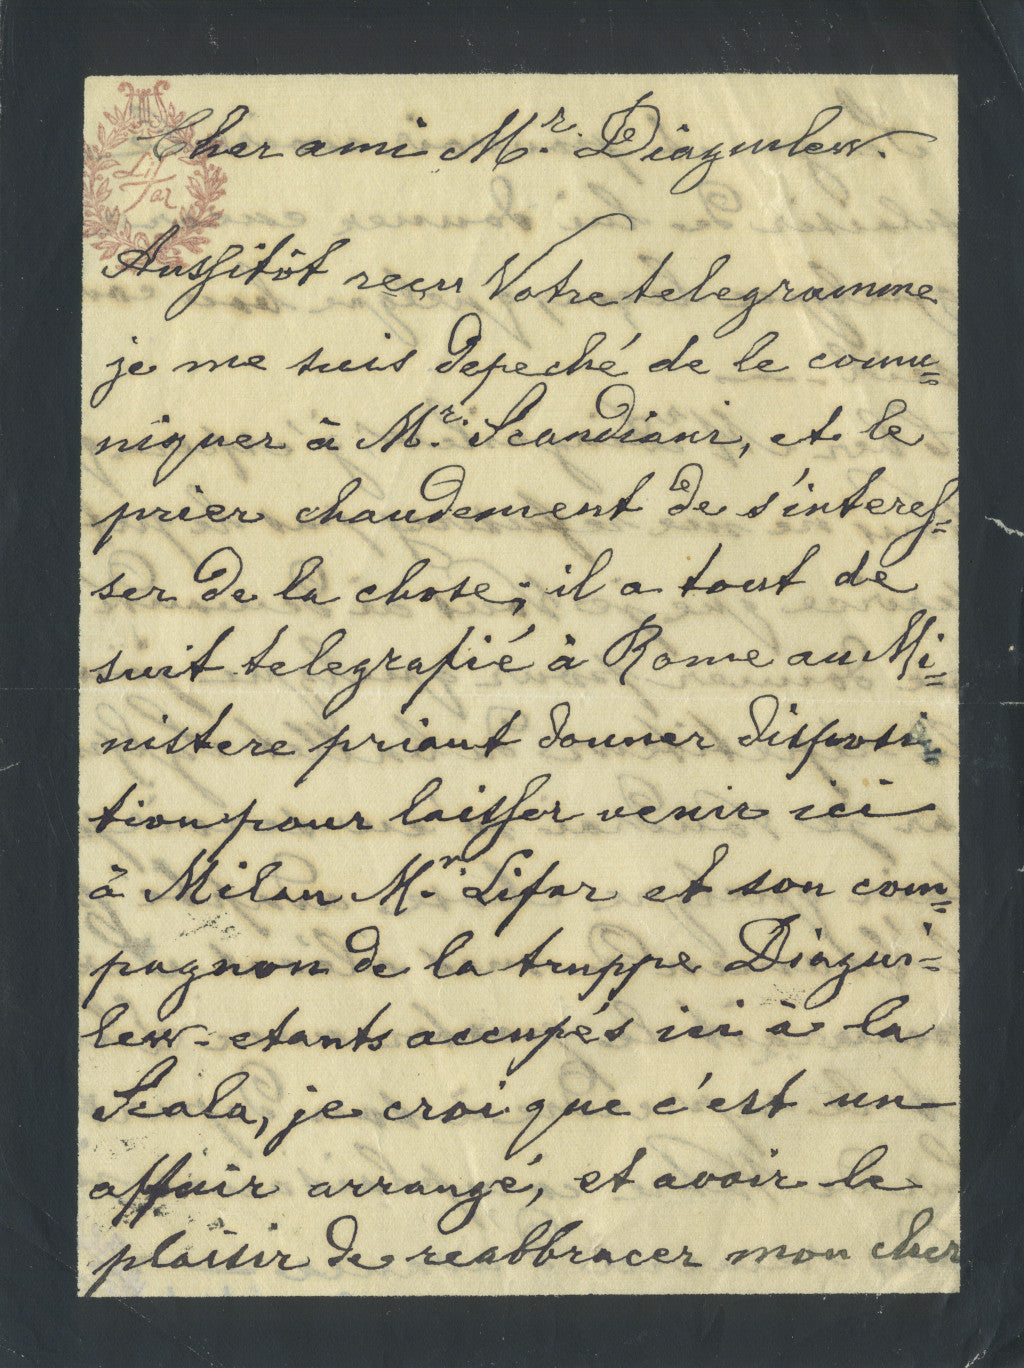 Lifar
Cher ami Mr. Diaguilew.
Aussitôt reçu Votre telegramme
je me suis depeché de le commu=
niquer à Mr. Scandiani, et le
prier chaudement de s'interes=
ser de la chose; il a tout de
suit telegrafié à Rome au Mi=
nistere priant donner disposi=
tion pour laisser venir ici
à Milan Mr. Lifar et son com=
pagnon de la truppe Diagui=
lew - etants accupés ici à la
Scala, je croi que c'est un
affair arrangé, et avoir le
plaisir de reabbracer mon cher